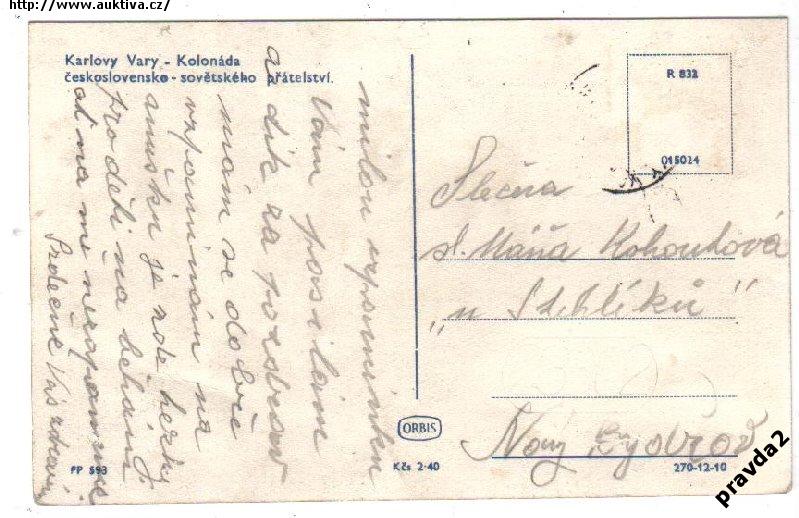 http://www.auktiva.cz/
Karlovy Vary - Kolonáda
československo - sovětského přátelství.
milou vzpomínku
Vám posílám
a dík za pozdrav
mám se dobře
vzpomínám na
je zde hezky
pro děti na
at na mě
Srdečně Vás zdraví
R 832
015024
Slečna
sl. Máňa Kohoutová
"u Stehlíků"
Nový Bydžov
ORBIS
FP 593
Kčs 2·40
270-12-10
pravda2